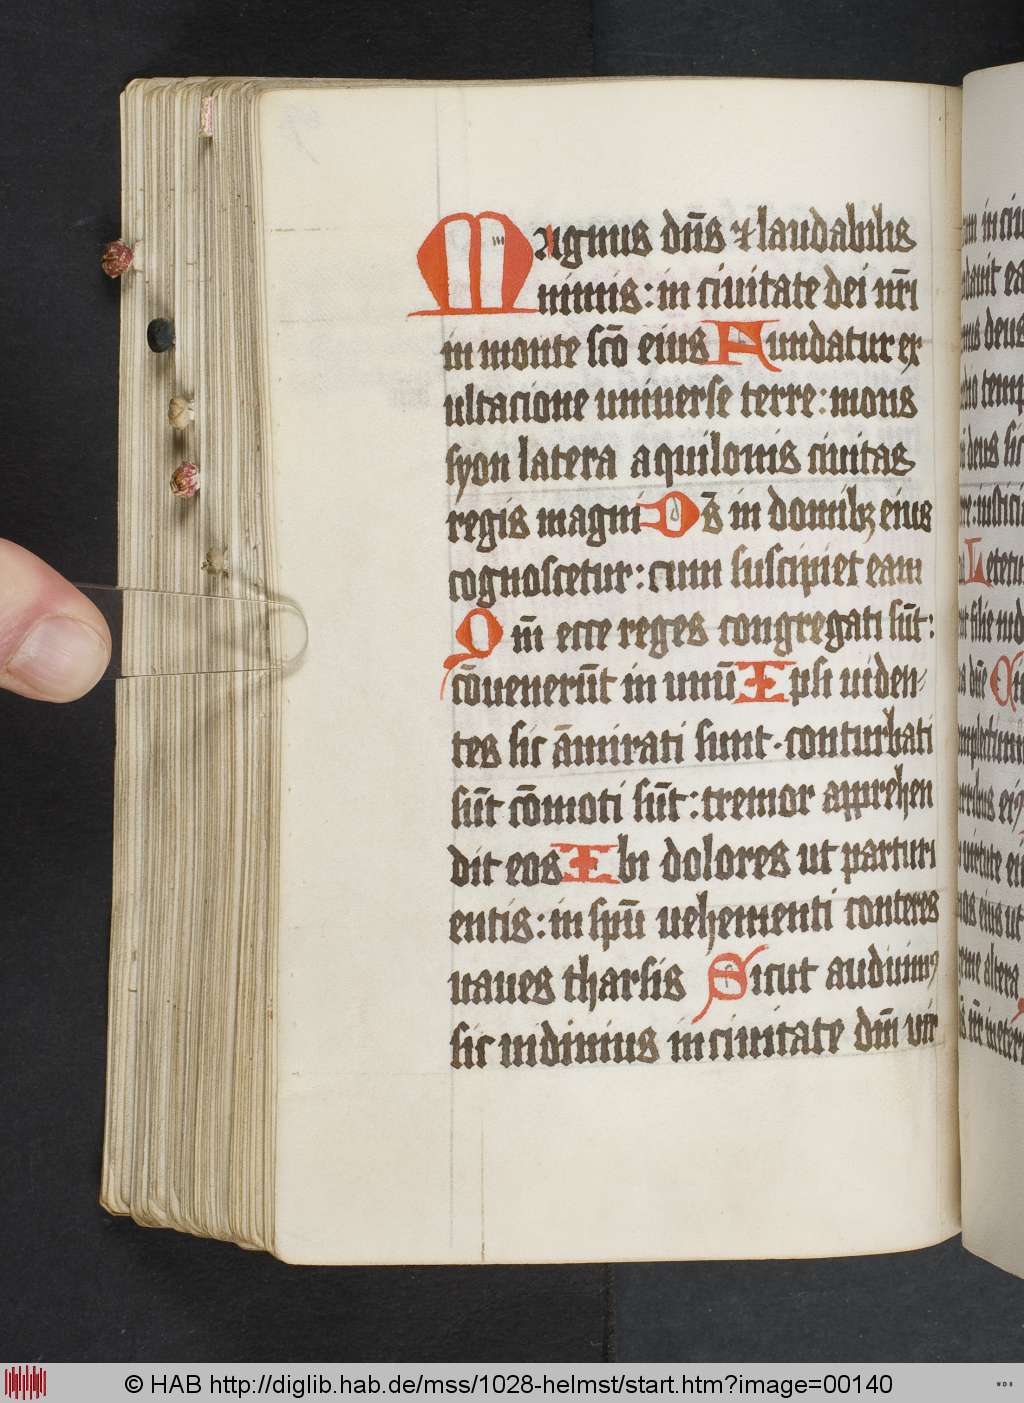 Magnus dn̄s ⁊ laudabilis
nimis : in ciuitate dei nr̄i
in monte sc̄o eius Fundatur ex
ultacione uniuerse terre : mons
syon latera aquilonis ciuitas
regis magni Ds̄ in domibꝫ eius
cognoscetur : cum suscipiet eam
Qm̄ ecce reges congregati sūt :
cōuenerūt in unū Ipsi uiden-
tes sic āmirati sunt · conturbati
sūt cōmoti sūt : tremor apprehen
dit eos Ibi dolores ut parturi
entis : in spū uehementi conteres
naues tharsis Sicut audiuimꝰ
sic uidimus in ciuitate dn̄i uir
© HAB http://diglib.hab.de/mss/1028-helmst/start.htm?image=00140